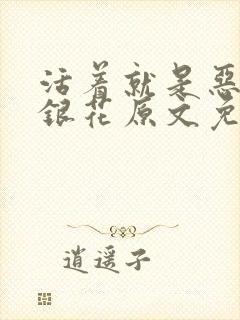 活着就是恶
银花原文免
逍遥子